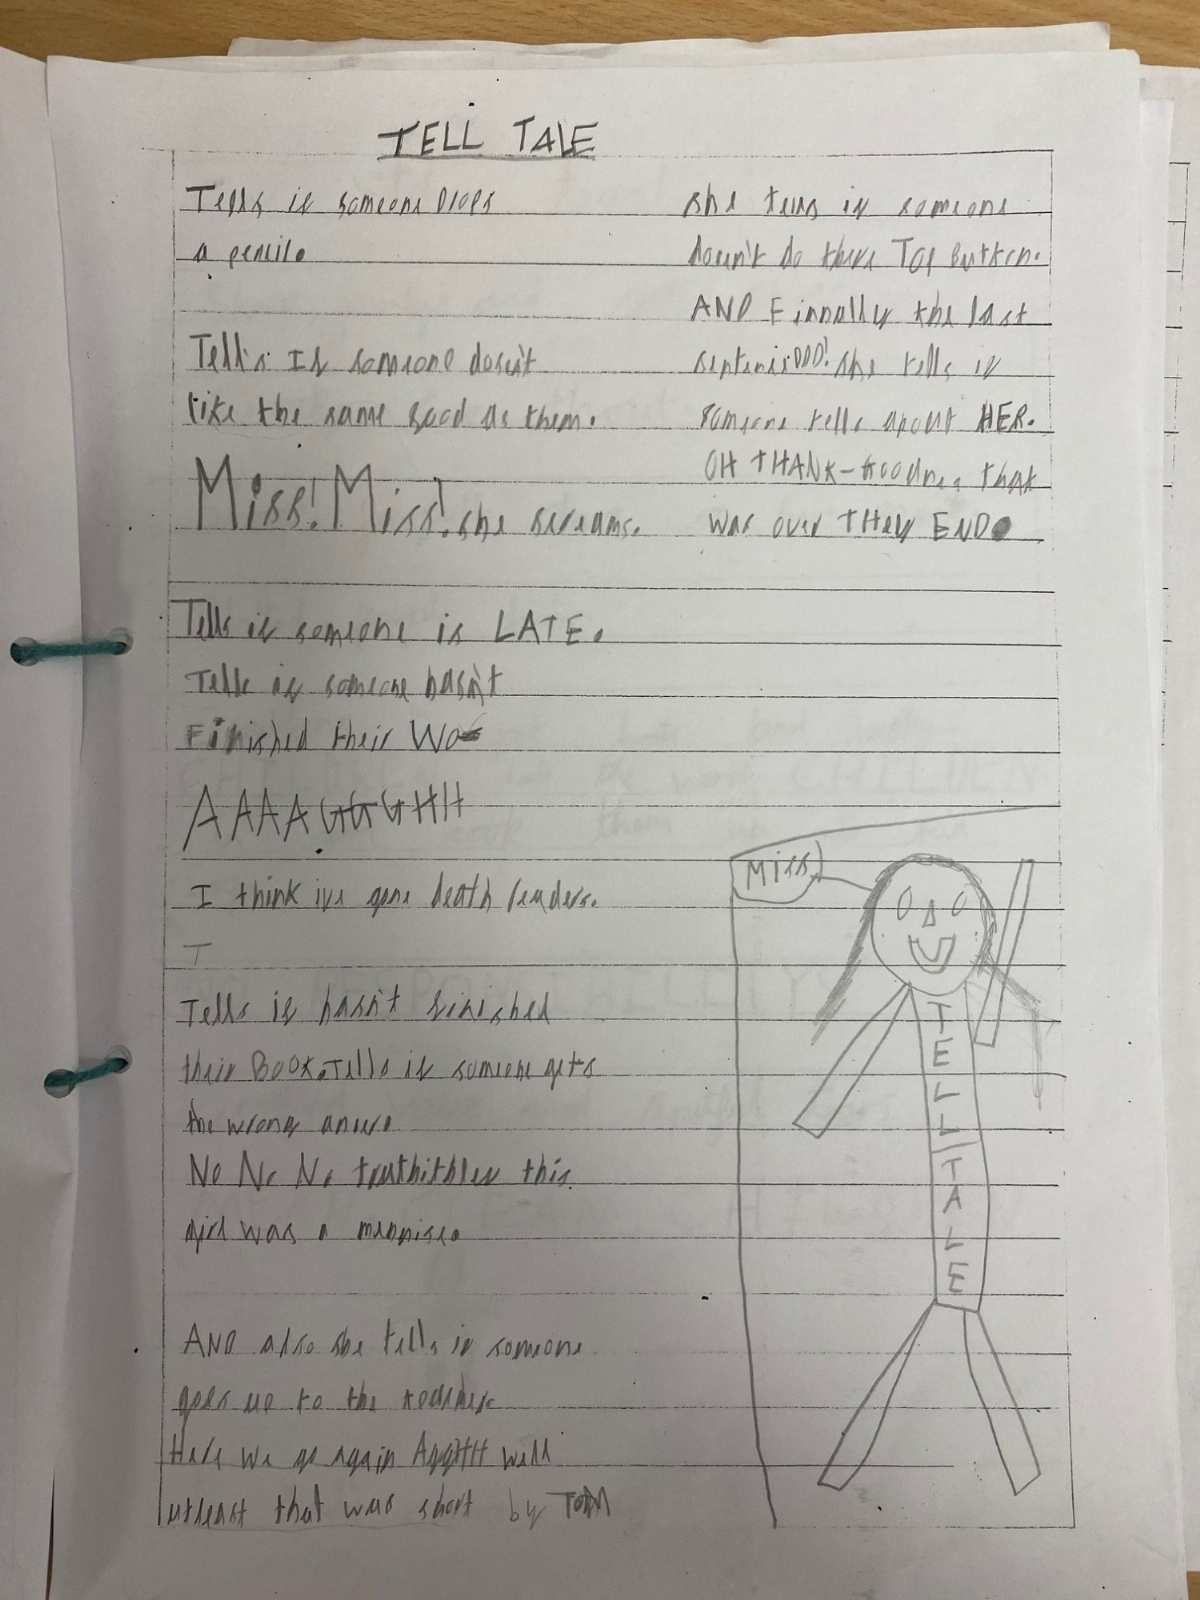 TELL TALE
Tells if someone Drops
a pencil.
Tells If someone doesn't
like the same food as them.
Miss! Miss! she screams.
Tells if someone is LATE.
Tells if someone hasn't
Finished their Wo
AAAAGGGHH
I think ive gone death readers.
T
Tells if hasn't finished
their BOOK. Tells if someone gets
the wrong
No No No this
girl was a mennise.
AND also she tells if someone
goes up to the teacher.
Here we go again AggHH well
utleast that was short by TOM
she tells if someone
doesn't do there TOP Button.
AND Finnally the last
she tells if
someone tells about HER.
OH THANK-Goodnes that
was over THey END.
Miss
TELL TALE